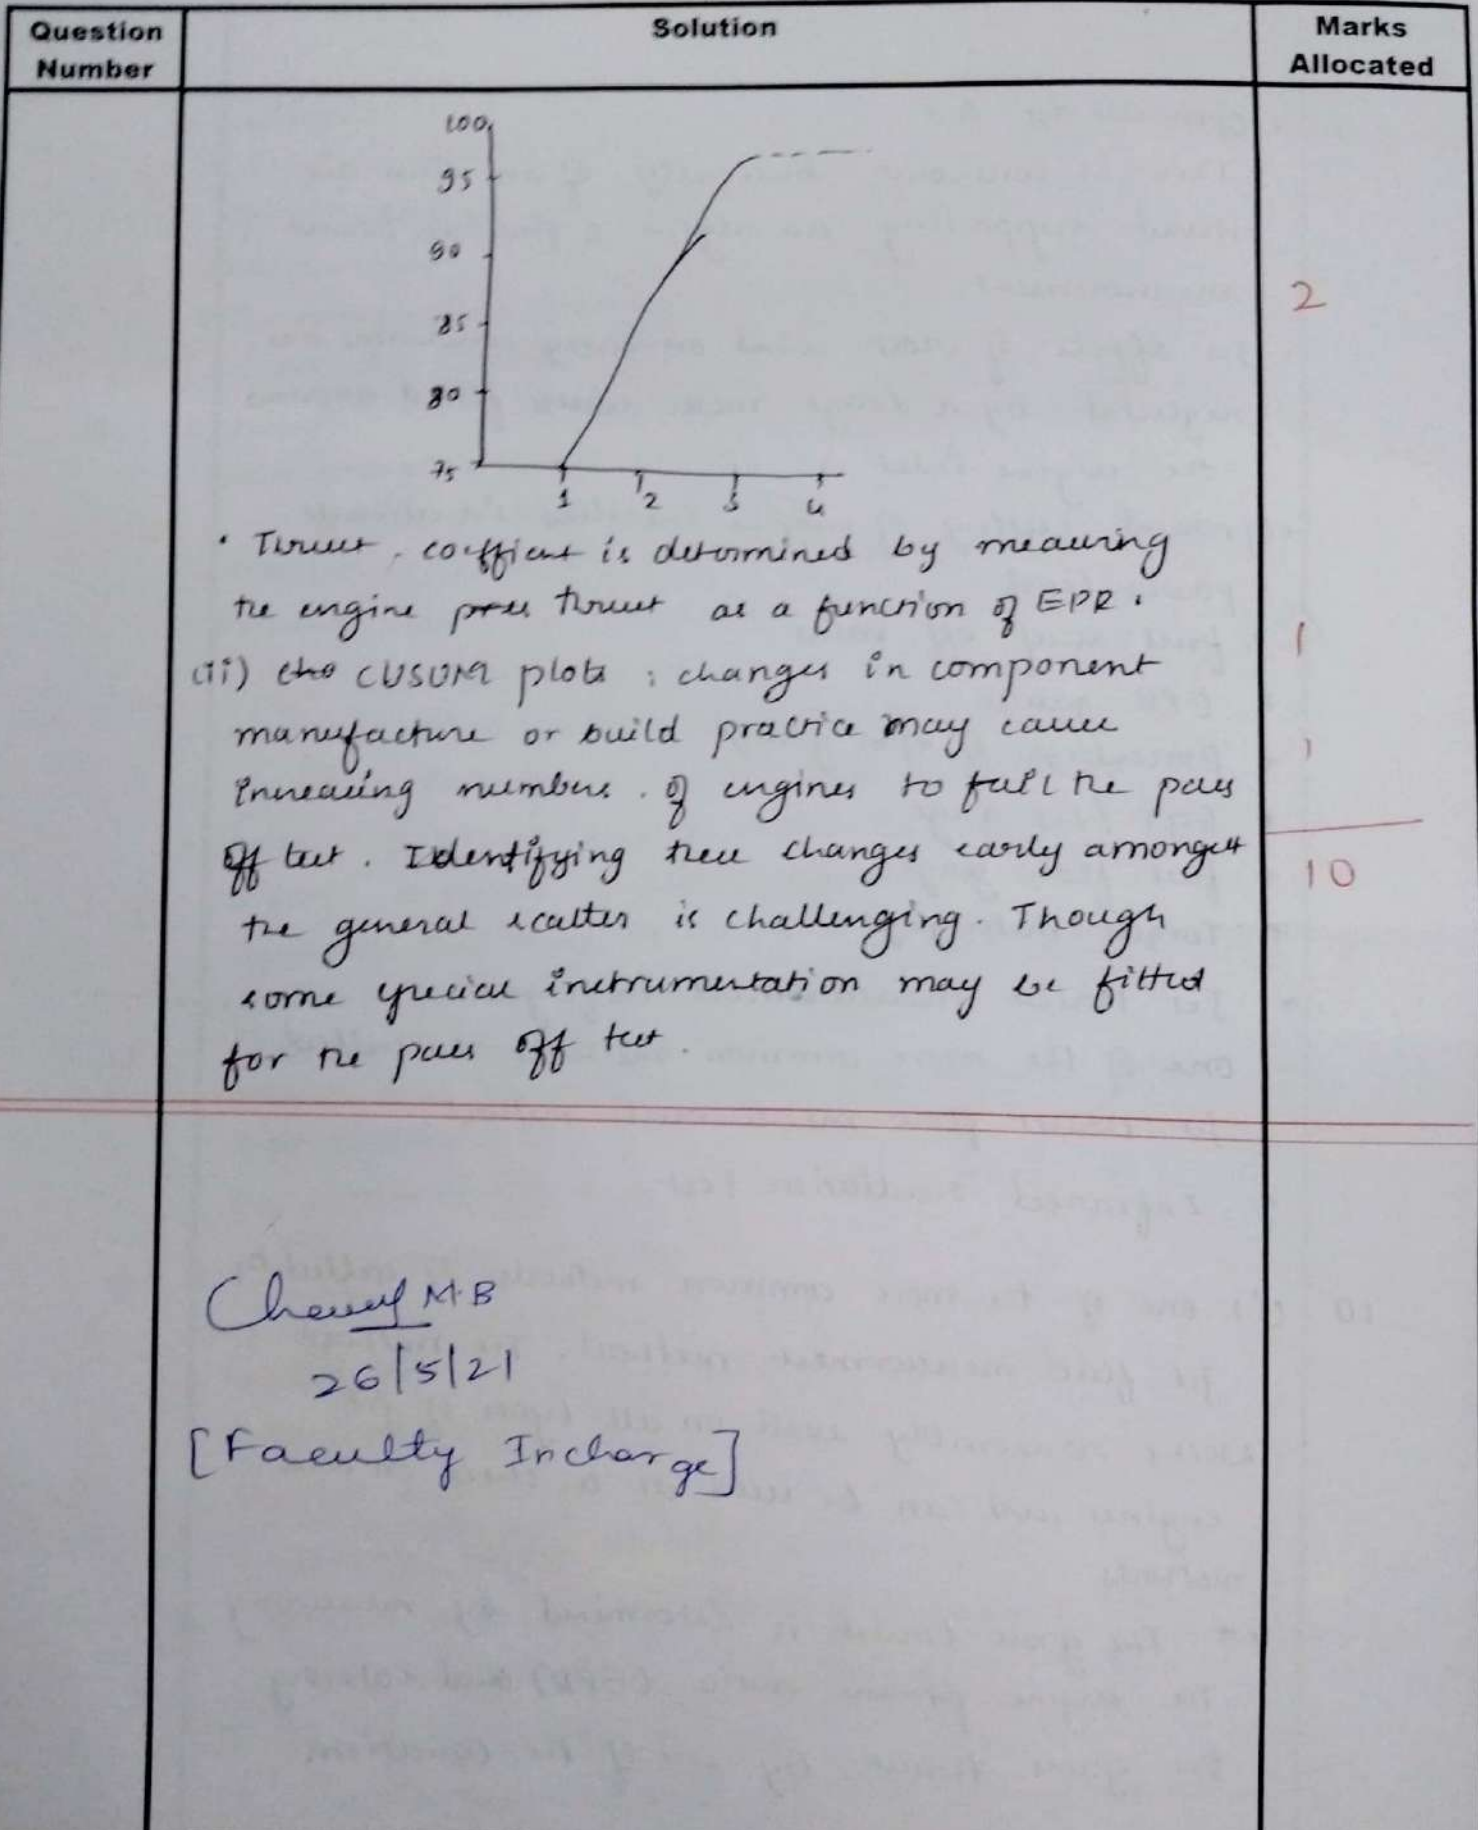 Question Number
Solution
Marks Allocated
100
95
90
85
80
75
1 2 3 4
2
• Thrust coefficient is determined by measuring
the engine pres thrust as a function of EPR.
1
(ii) cho CUSUM plots : changes in component
manufacture or build practice may cause
1
increasing numbers of engines to fail the pass
off test. Identifying these changes early amongst
10
the general scatter is challenging. Though
some special instrumentation may be fitted
for the pass off test.
M.B
26/5/21
[Faculty Incharge]